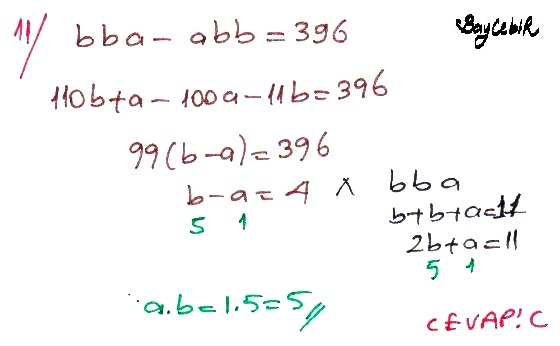 11/ bba - abb = 396
BayCebiR
110b+a - 100a - 11b = 396
99(b-a) = 396
b-a = 4 ∧ bba
5 1
b+b+a=11
2b+a=11
5 1
a.b=1.5=5//
CEVAP:C